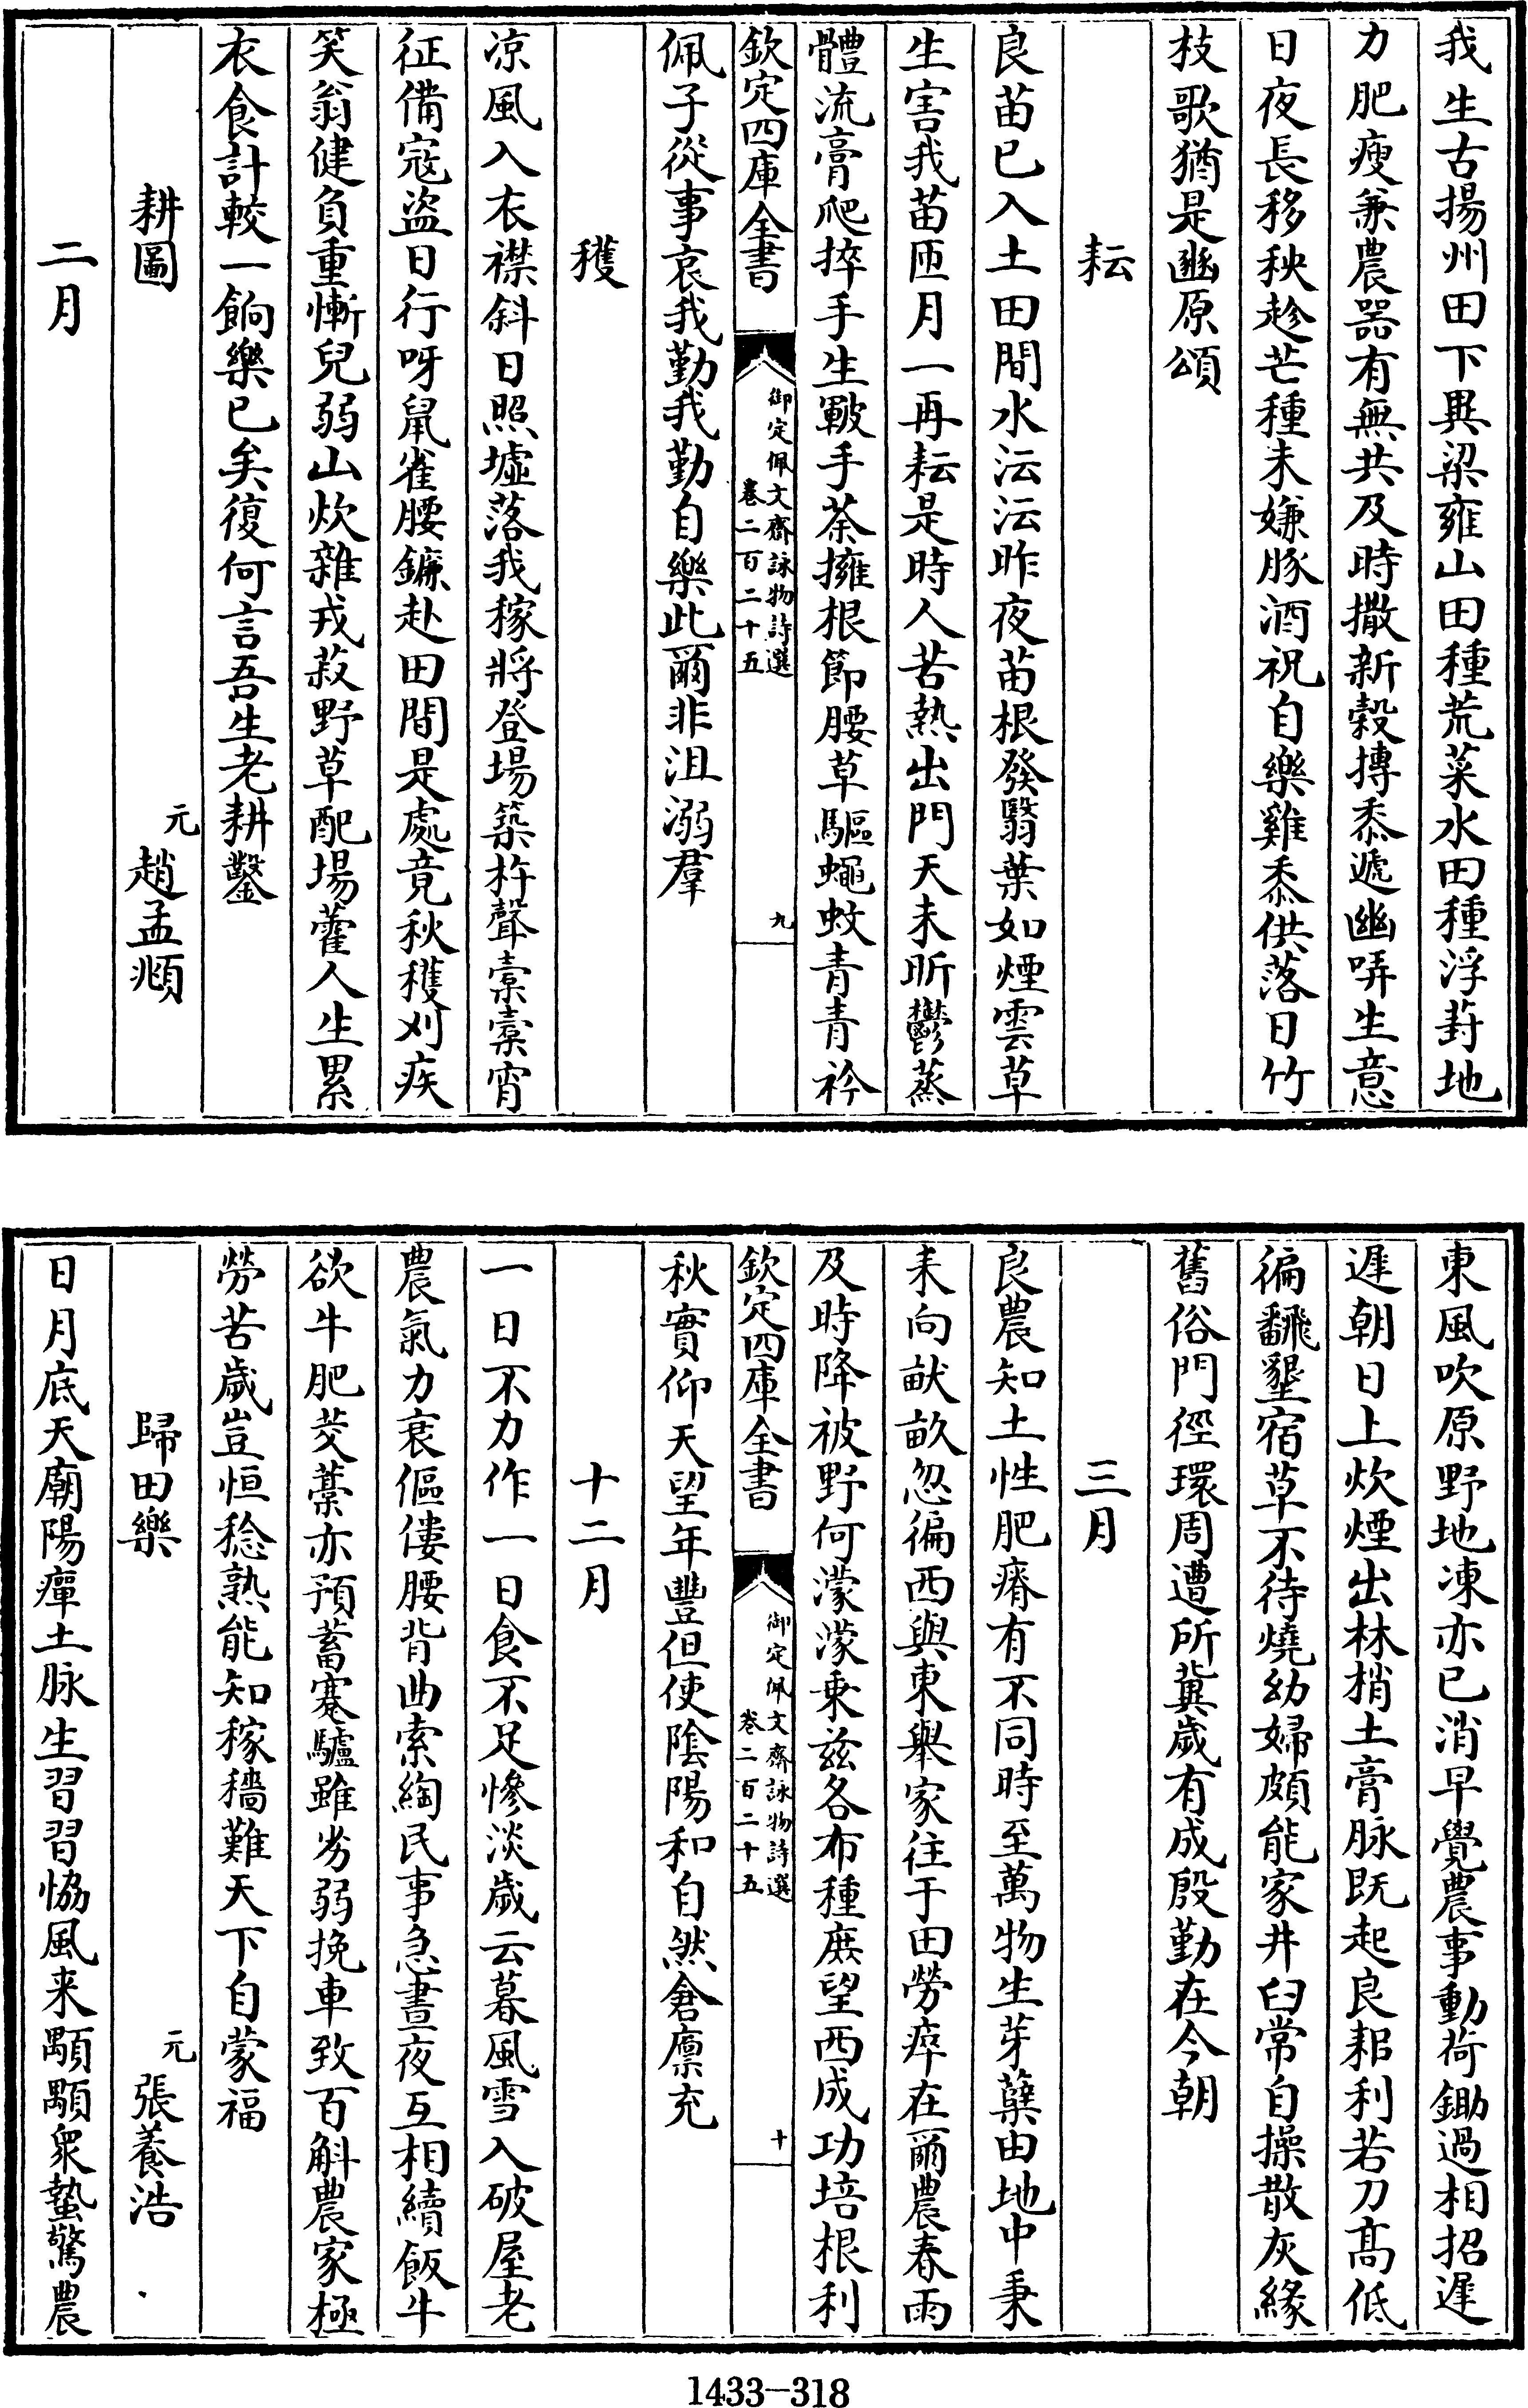 我生古揚州田下異梁雍山田種荒菜水田種浮葑地
力肥瘦兼農器有無共及時撒新穀摶黍遞幽哢生意
日夜長移秧趁芒種未嫌豚酒祝自樂雞黍供落日竹
枝歌猶是豳原頌
耘
良苗已入土田間水沄沄昨夜苗根發翳葉如煙雲草
生害我苗匝月一再耘是時人苦熱出門天未昕鬱蒸
體流膏爬捽手生皸手荼擁根節腰草驅蠅蚊青青衿
欽定四庫全書
御定佩文齋詠物詩選
卷二百二十五
九
佩子從事哀我勤我勤自樂此爾非沮溺羣
穫
凉風入衣襟斜日照墟落我稼將登場築杵聲橐橐宵
征備寇盜日行呀鼠雀腰鐮赴田間是處竟秋穫刈疾
笑翁健負重慚兒弱山炊雜戎菽野草配場藿人生累
衣食計較一餉樂已矣復何言吾生老耕鑿
耕圖
元
趙孟頫
二月
東風吹原野地凍亦已消早覺農事動荷鋤過相招遲
遲朝日上炊煙出林梢土膏脉既起良耜利若刀髙低
徧翻墾宿草不待燒幼婦頗能家井臼常自操散灰緣
舊俗門徑環周遭所冀歲有成殷勤在今朝
三月
良農知土性肥瘠有不同時至萬物生芽蘖由地中秉
耒向畎畝忽徧西與東舉家往于田勞瘁在爾農春雨
及時降被野何濛濛乗兹各布種庶望西成功培根利
欽定四庫全書
御定佩文齋詠物詩選
卷二百二十五
十
秋實仰天望年豐但使陰陽和自然倉廩充
十二月
一日不力作一日食不足慘淡歲云暮風雪入破屋老
農氣力衰傴僂腰背曲索綯民事急晝夜互相續飯牛
欲牛肥茭藁亦預蓄蹇驢雖劣弱挽車致百斛農家極
勞苦歲豈恒稔熟能知稼穡難天下自蒙福
歸田樂
元
張養浩
日月底天廟陽癉土脉生習習恊風来顒顒衆蟄驚農
1433-318